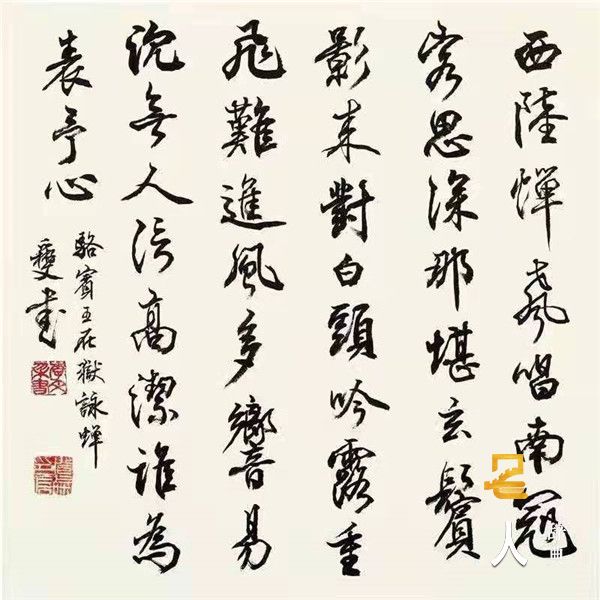 西陸蟬聲唱南冠
客思深那堪玄鬢
影来對白頭吟露重
飛難進風多響易
沉無人信高潔誰為
表予心
駱賓王在獄詠蟬
書
人